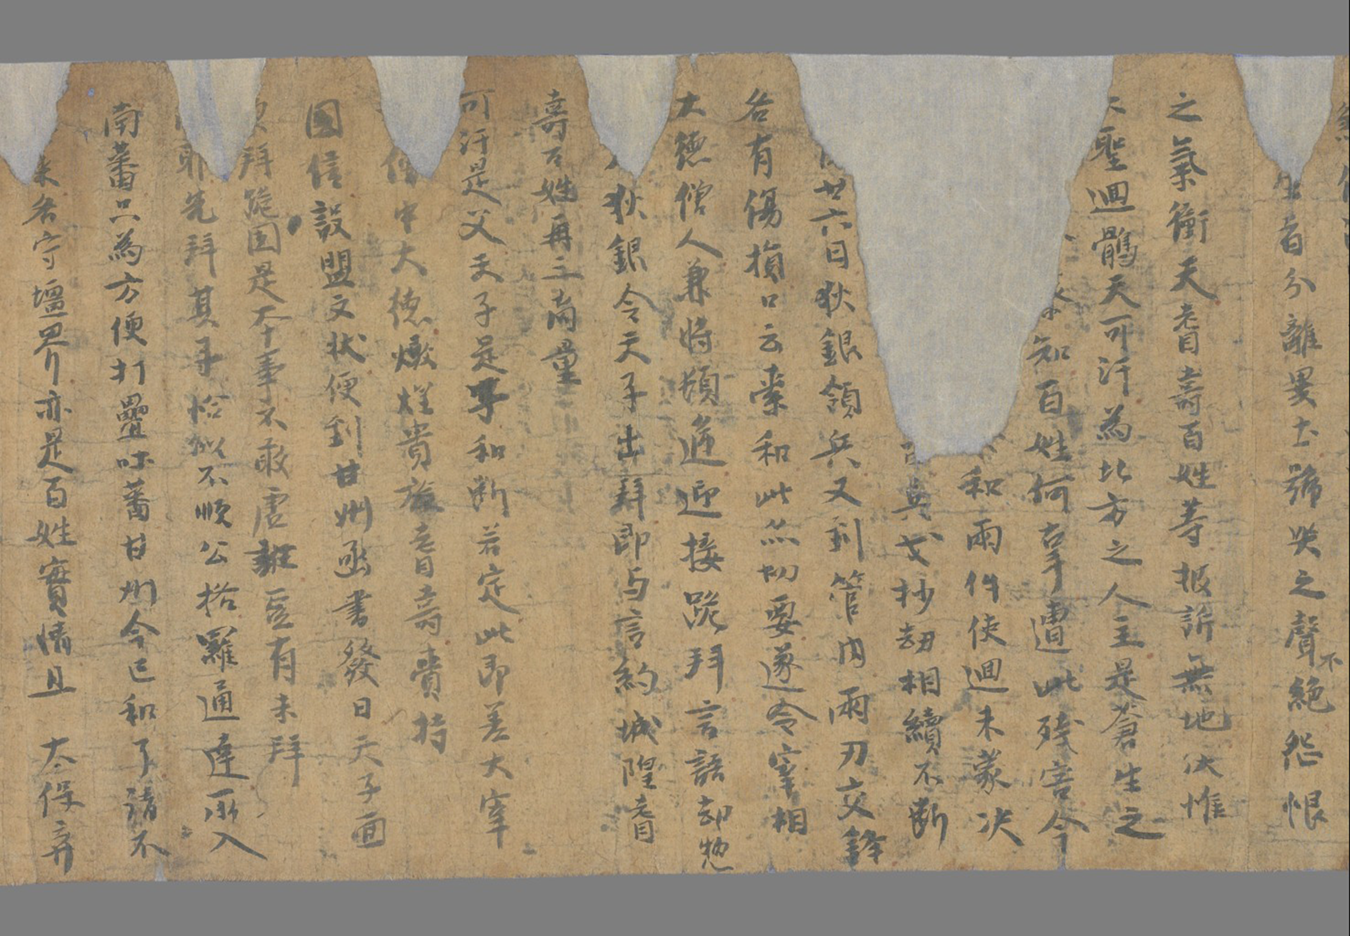 者分離異土號哭之聲不絕怨恨
之氣衝天耆壽百姓等披訴無地伏惟
聖迴鶻天可汗為北方之人主是蒼生之
知百姓何辜遭此殘害今
和兩件使迴未蒙決
兵戈抄劫相續不斷
廿六日狄銀領兵又到管內兩刃交鋒
各有傷損口云索和此亦切要遂令宰相
大德僧人兼將頓遞迎接跪拜言語却惣
狄銀令天子出拜即与言約城隍耆
壽百姓再三商量
可汗是父天子是子和斷若定此即差大宰
僧中大德燉煌貴族耆壽賷持
國信設盟文狀便到甘州函書發日天子面
拜跪固是本事不敢虛誑豈有未拜
耶先拜其子恰似不順公格羅通達所入
南蕃只為方便打疊吐蕃甘州今已和了請不
來各守壃界亦是百姓實情且 太保弃